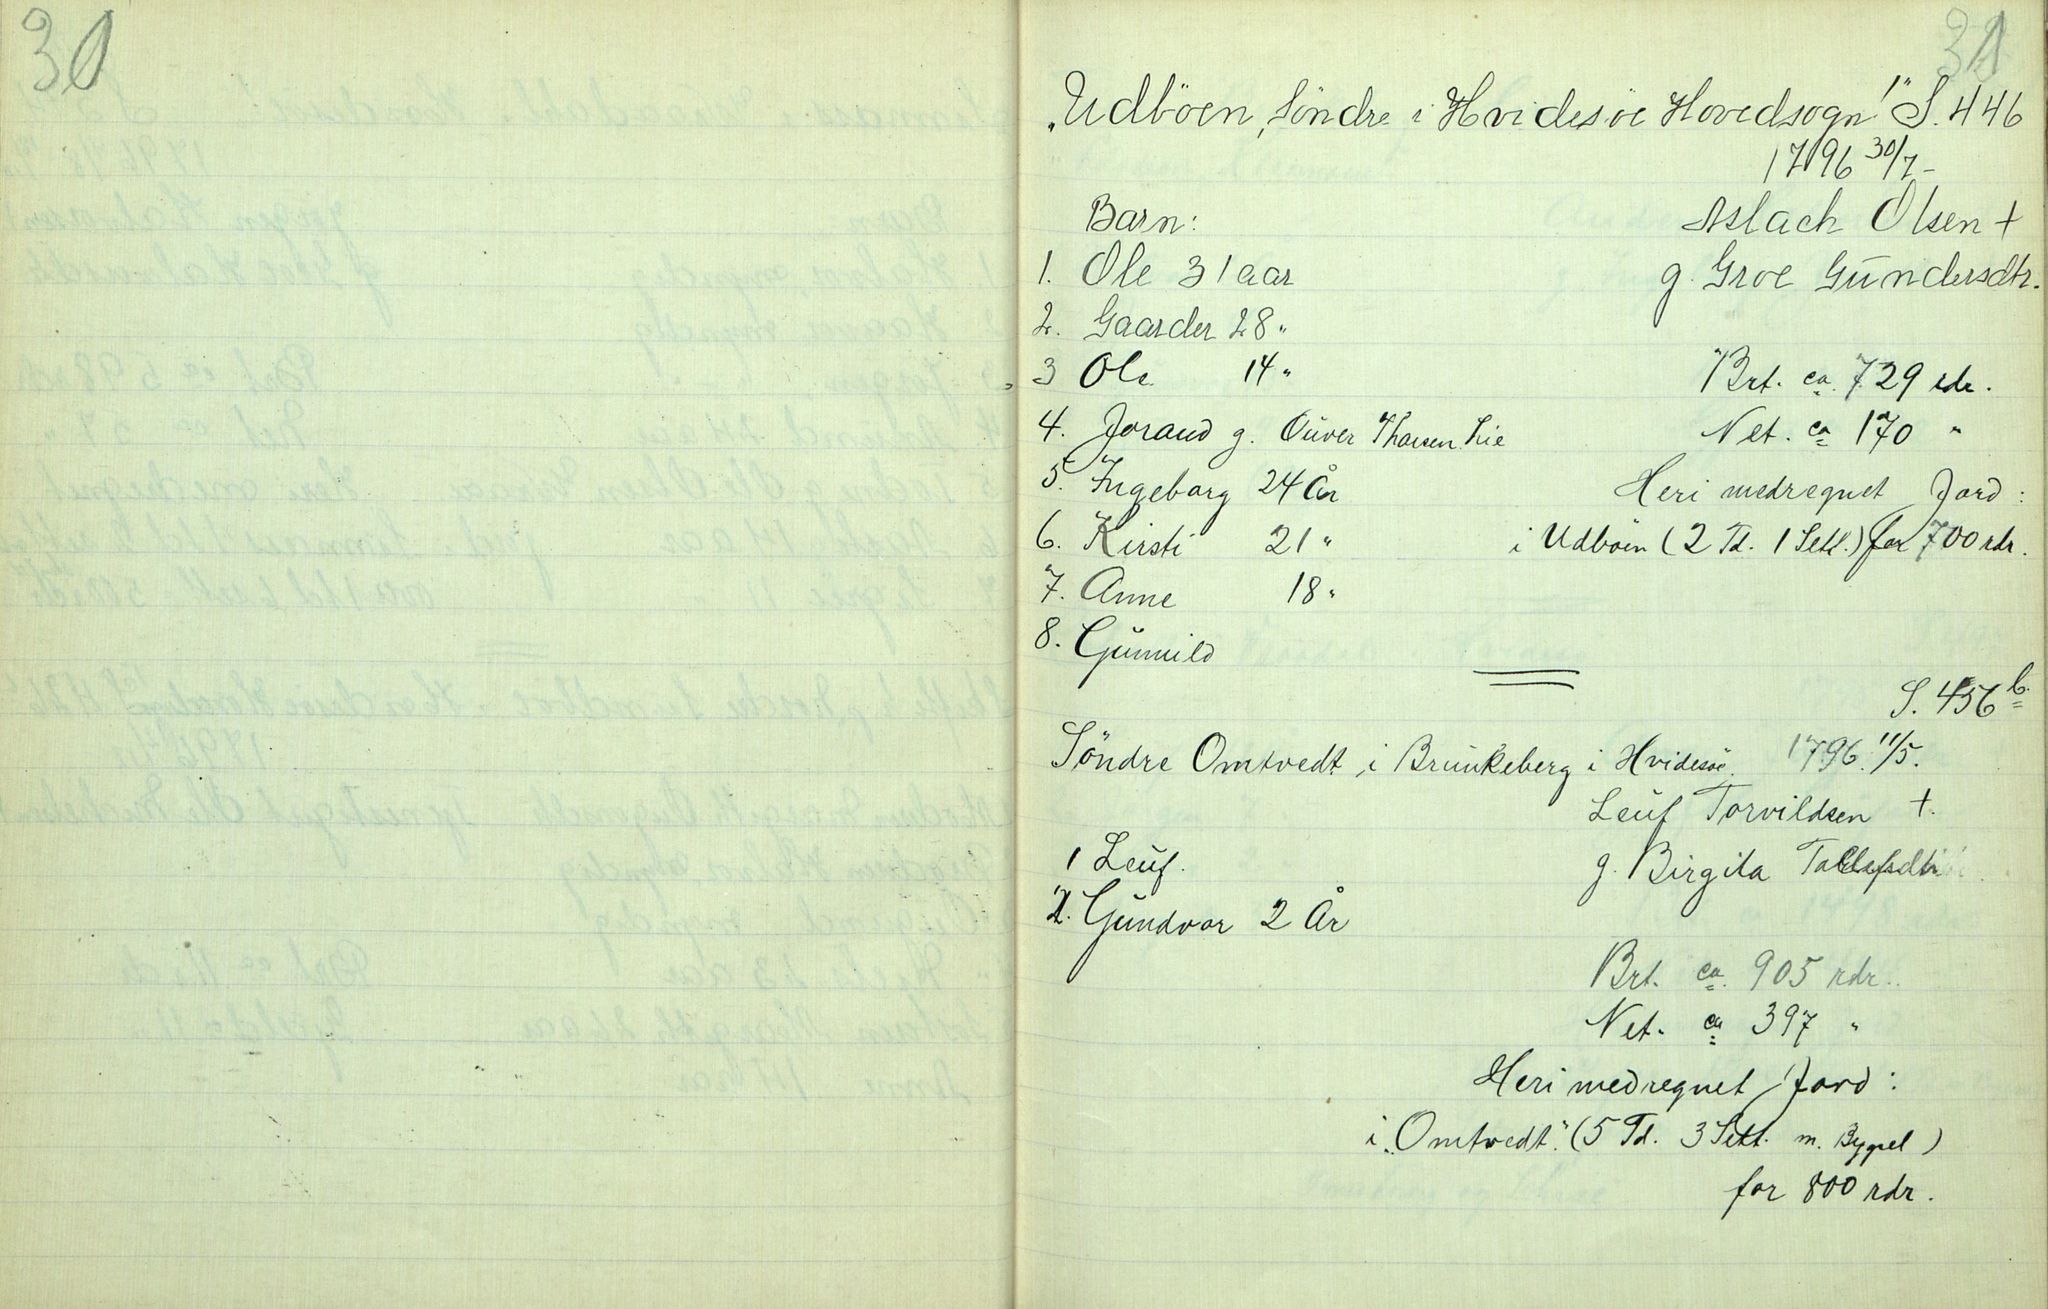 30
31
„Udböen, Söndre i Hvidesöe Hovedsogn!" S. 446
1796 30/7-
Barn: Aslach Olsen +
1. Ole 31 aar g. Groe Gundersdtr.
2. Gaarder 28 "
3 Ole 14 " Brt. ca. 729 rdr.
4. Joraud g. Ouver Lie Net. ca 170 "
5. Ingeborg 24 År Heri medregnet Jord:
6. Kirsti 21 " i Udböen (2 Td. 1 Sett.) for 700 rdr.
7. Anne 18 "
8. Gunnild
S. 456 b.
Söndre Omtvedt i Brunkeberg i Hvidesöe. 1796. 11/5.
Leuf Torvildsen +.
1 Leuf. g. Birgita
2. Gundvor 2 År
Brt. ca. 905 rdr.
Net. ca 397 "
Heri medregnet Jord:
i „Omtvedt." (5 Td. 3 Sett. m. Bygsel)
for 800 rdr.